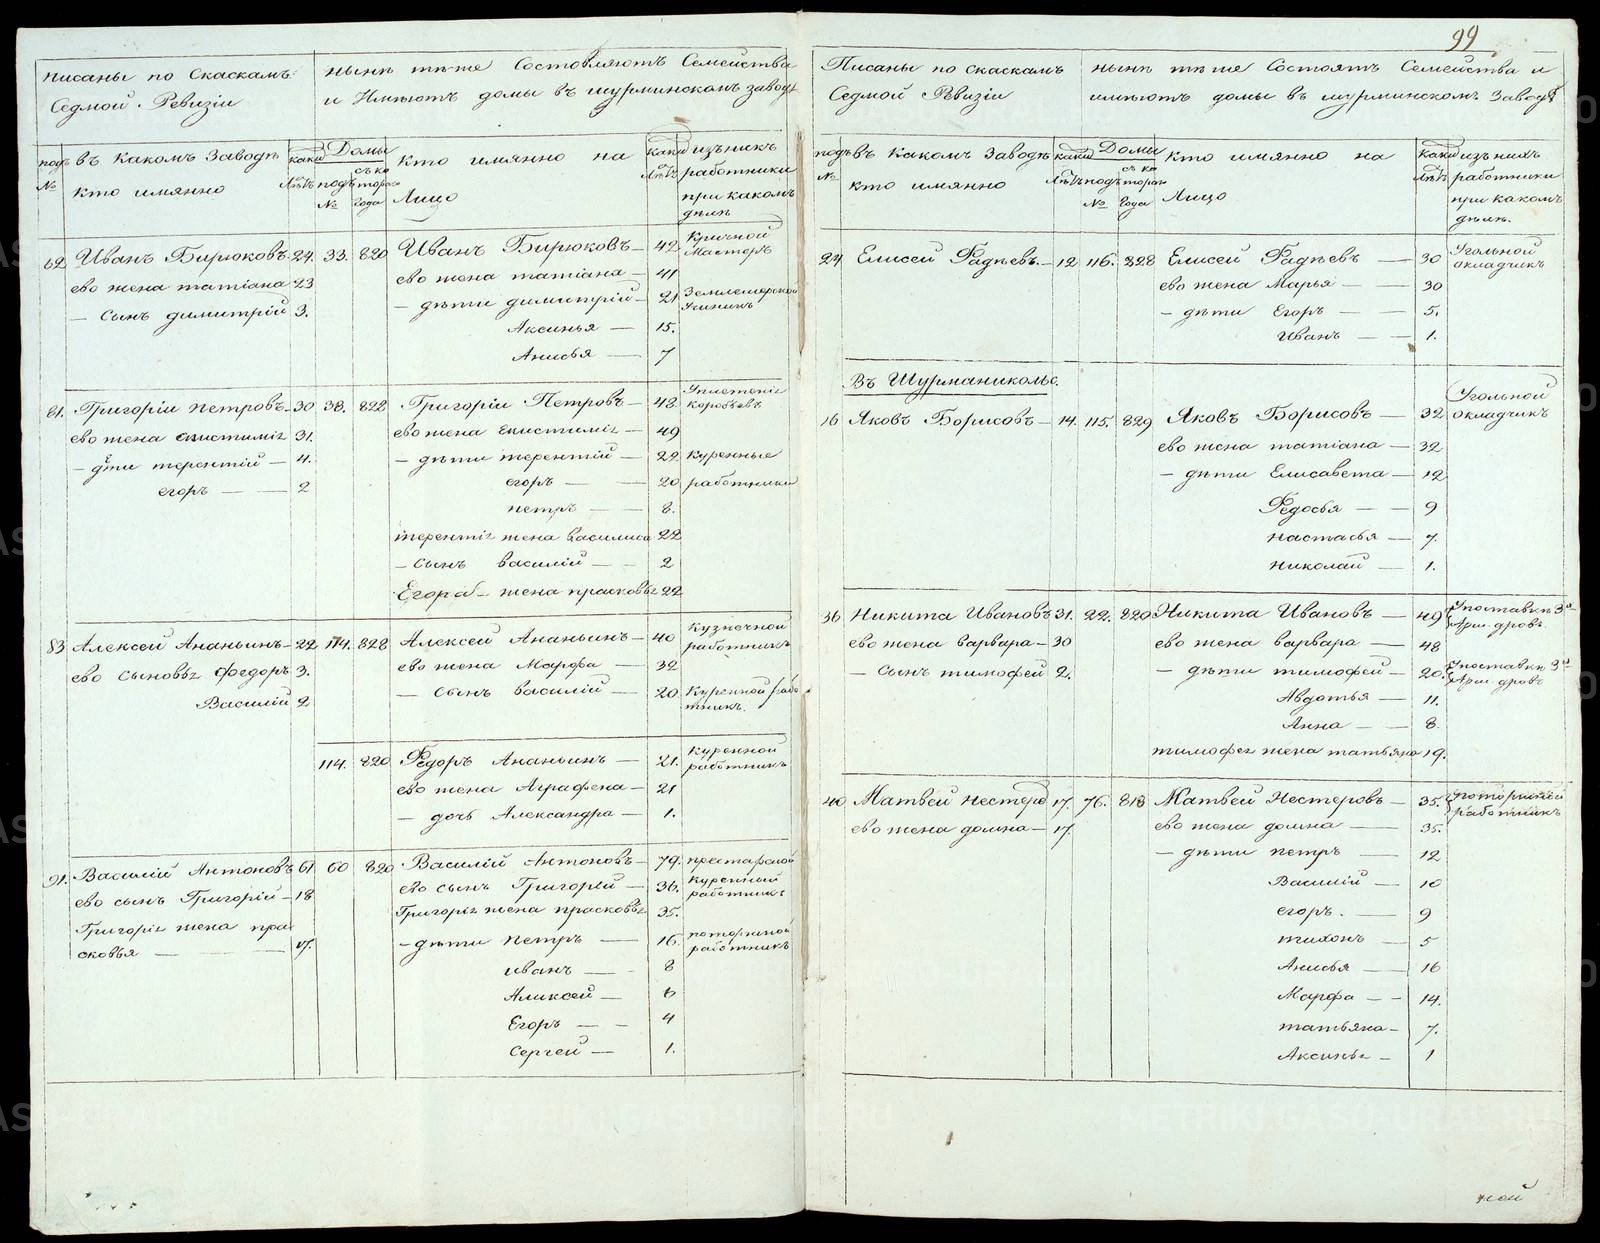 99
писаны по скаскамъ
Седмой Ревизіи
нынѣ тѣ-же Состовляютъ Семейства
и Имѣютъ домы въ шурминскомъ заводѣ
подъ № въ какомъ Заводѣ кто имянно
каки лѣтъ
Домы
подъ № съ котораго Года
кто имянно на Лицо
каки лѣтъ
изъ нихъ работники при какомъ дѣлѣ
62 Иванъ Бирюковъ 24. 33. 820 Иванъ Бирюковъ 42 Кричной Мастеръ
ево жена татіана 23 ево жена татіана 41
Сынъ димитрій 3. дѣти димитрій 21 Землемерской Ученикъ
Аксинья 15.
Анисья 7
81. Григоріи петровъ 30 38. 822 Григоріи Петровъ 48 Уплетенія коробьевъ
ево жена 31. ево жена 49
дѣти терентій 4. дѣти терентій 22 куренные
егоръ 2 егоръ 20 работники
петръ 8.
терентія жена василиса 22
сынъ василій 2
Егора жена прасковья 22
83 Алексей Ананьинъ 22 114. 828 Алексей Ананьинъ 40 Кузнечной работникъ
ево Сыновья федоръ 3. ево жена Марфа 32
Василій 2 сынъ василій 20 Куренной работникъ.
114. 820 Федоръ Ананьинъ 21. Куренной работникъ
ево жена Аграфена 21
дочь Александра 1.
91. Василій Антоновъ 61 60 820 Василій Антоновъ 79. престарелой
ево сынъ Григорій 18 ево сынъ Григорій 36. Куренный работникъ
Григорія жена прасковья 17. Григорія жена прасковья 35.
дѣти петръ 16. поторжной работникъ
иванъ 8
Алексей 6
Егоръ 4
Сергей 1.
Писаны по скаскамъ
Седмой Ревизіи
нынѣ тѣ же Состоятъ Семейства и
имѣютъ домы въ шурминскомъ Заводѣ
подъ № въ какомъ Заводѣ кто имянно
каки лѣтъ
Домы
подъ № съ котораго Года
кто имянно на Лицо
каки лѣтъ
изъ нихъ работники при какомъ дѣлѣ.
24 Елисей Фадѣевъ 12 116. 828 Елисей Фадѣевъ 30 Угольной окладчикъ
ево жена Марья 30
дѣти Егоръ 5.
Иванъ 1.
Въ Шурманикольс.
16 Яковъ Борисовъ 14. 115. 829 Яковъ Борисовъ 32 Угольной окладчикъ
ево жена татіана 32
дѣти Елисавета 12
Федосья 9
настасья 7.
николай 1.
36 Никита Ивановъ 31. 22. 820 Никита Ивановъ 49 Упоставки 3 арш. дровъ
ево жена варвара 30 ево жена варвара 48
сынъ тимофей 2. дѣти тимофей 20. Упоставки 3 арш. дровъ
Авдотья 11.
Анна 8
тимофея жена татьяна 19.
40 Матвей нестеро 17. 76. 818 Матвей Нестеровъ 35. поторжней работникъ
ево жена домна 17. ево жена домна 35.
дѣти петръ 12
Василій 10
егоръ. 9
тихонъ 5
Анисья 16
Марфа 14.
татьяна 7.
Аксинья 1
METRIKI.GASO-URAL.RU